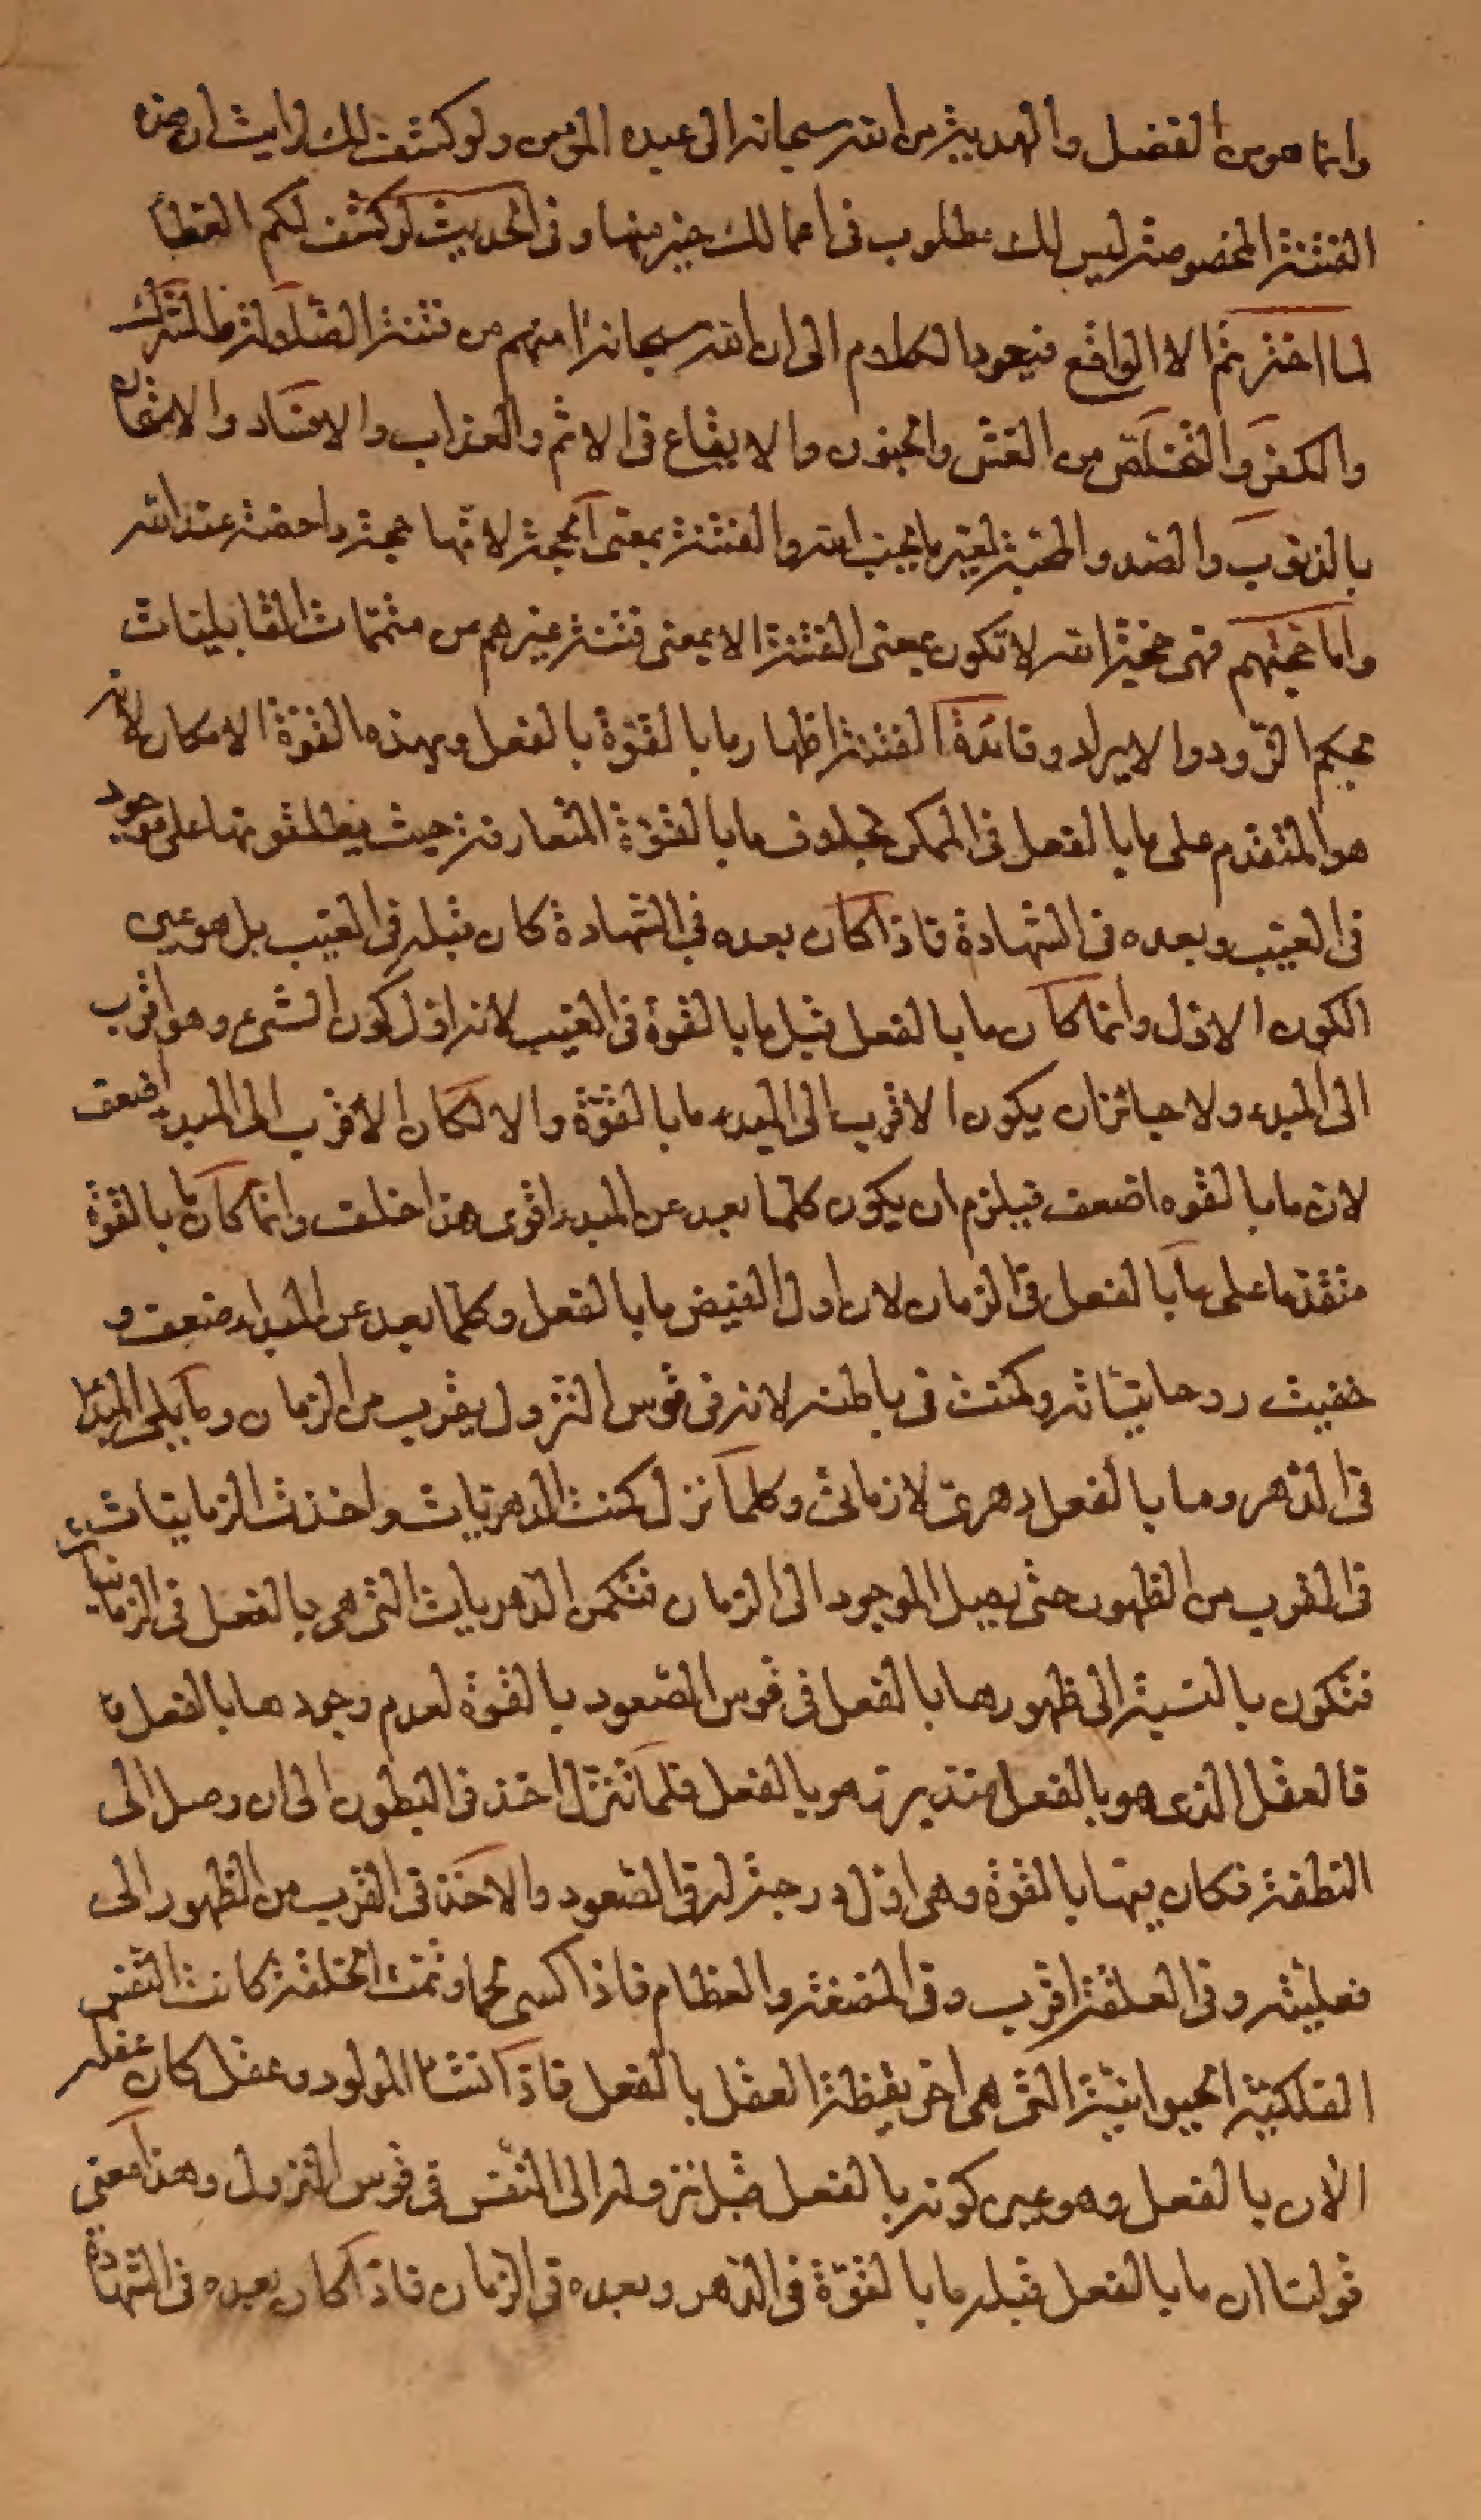 وانما هو من الفضل والهدية من الله سبحانه الى عبده المؤمن ولو كشفت لك لرايت ان هذه
الفتنة المخصوصة ليس لك مطلوب فى اعمالك خير منها وفى الحديث لو كشف لكم الغطآ
لما اخترتم الا الواقع فيعود الكلام الى ان الله سبحانه امنهم من فتنة الضلولة
والكفر والتخلص من الغش والجنون والايقاع فى الاثم والعذاب والافساد والامتحان
بالذنوب والصد والمحبة لغير ما يحب الله والفتنة بمعنى الحجة لانها حجة داحضة عند الله
واما محبتهم فهى محبة الله لا تكون بمعنى الفتنة الا بمعنى فتنة غيرهم من متممات القابليات
بحكم الورود والايراد وفائدة الفتنة اظهار ما بالقوة بالفعل وبهذه القوة الامكان لانه
هو المتقدم على ما بالفعل فى الممكن بخلاف ما بالقوة المتعارفة حيث يطلقونها على موجود
فى الغيب وبعده فى الشهادة فاذا كان بعده فى الشهادة كان قبله فى الغيب بل هو عين
الكون الاول وانما كان ما بالفعل قبل ما بالقوة فى الغيب لانه اول كون الشىء وهو اقرب
الى المبدء ولا جائز ان يكون الاقرب الى المبدء ما بالقوة والا لكان الاقرب الى المبدء اضعف
لان ما بالقوه اضعف فيلزم ان يكون كلما بعد عن المبدء اقوى هذا خلف وانما كان ما بالقوة
متقدما على ما بالفعل فى الزمان لان اول الفيض ما بالفعل وكلما بعد عن المبداء ضعف و
خفيت روحانيّاته وكمنت فى باطنه لانه فى قوس النزول يقرب من الزمان وما يلى المبدا
فى الدهر وما بالفعل دهرى لا زمانى وكلما نزل كمنت الدهريات واخذت الزمانيات
فى القرب من الظهور حتى يصل الموجود الى الزمان فتكمن الدهريات التى هى بالفعل فى الزمانيات
فتكون بالنسبة الى ظهورها بالفعل فى قوس الصعود بالقوة لعدم وجودها بالفعل
فالعقل الذى هو بالفعل هو بالفعل فلما تنزل اخذ فى البطون الى ان وصل الى
النطفة فكان فيها بالقوة وهى اول درجة له فى الصعود والاخذ فى القرب من الظهور الى
فعليته وفى العلقة اقرب وفى المضغة والعظام فاذا كسى لحما وتمت الخلقة كانت النفس
الفلكية الحيوانية التى هى اخر يقظة العقل بالفعل فاذا انشأ المولود وعقل كان عقله
الآن بالفعل وهو عين كونه بالفعل قبل نزوله الى النفس فى قوس النزول وهذا معنى
قولنا ان ما بالفعل قبله ما بالقوة فى الدهر وبعده فى الزمان فاذا كان بعده فى الشهادة